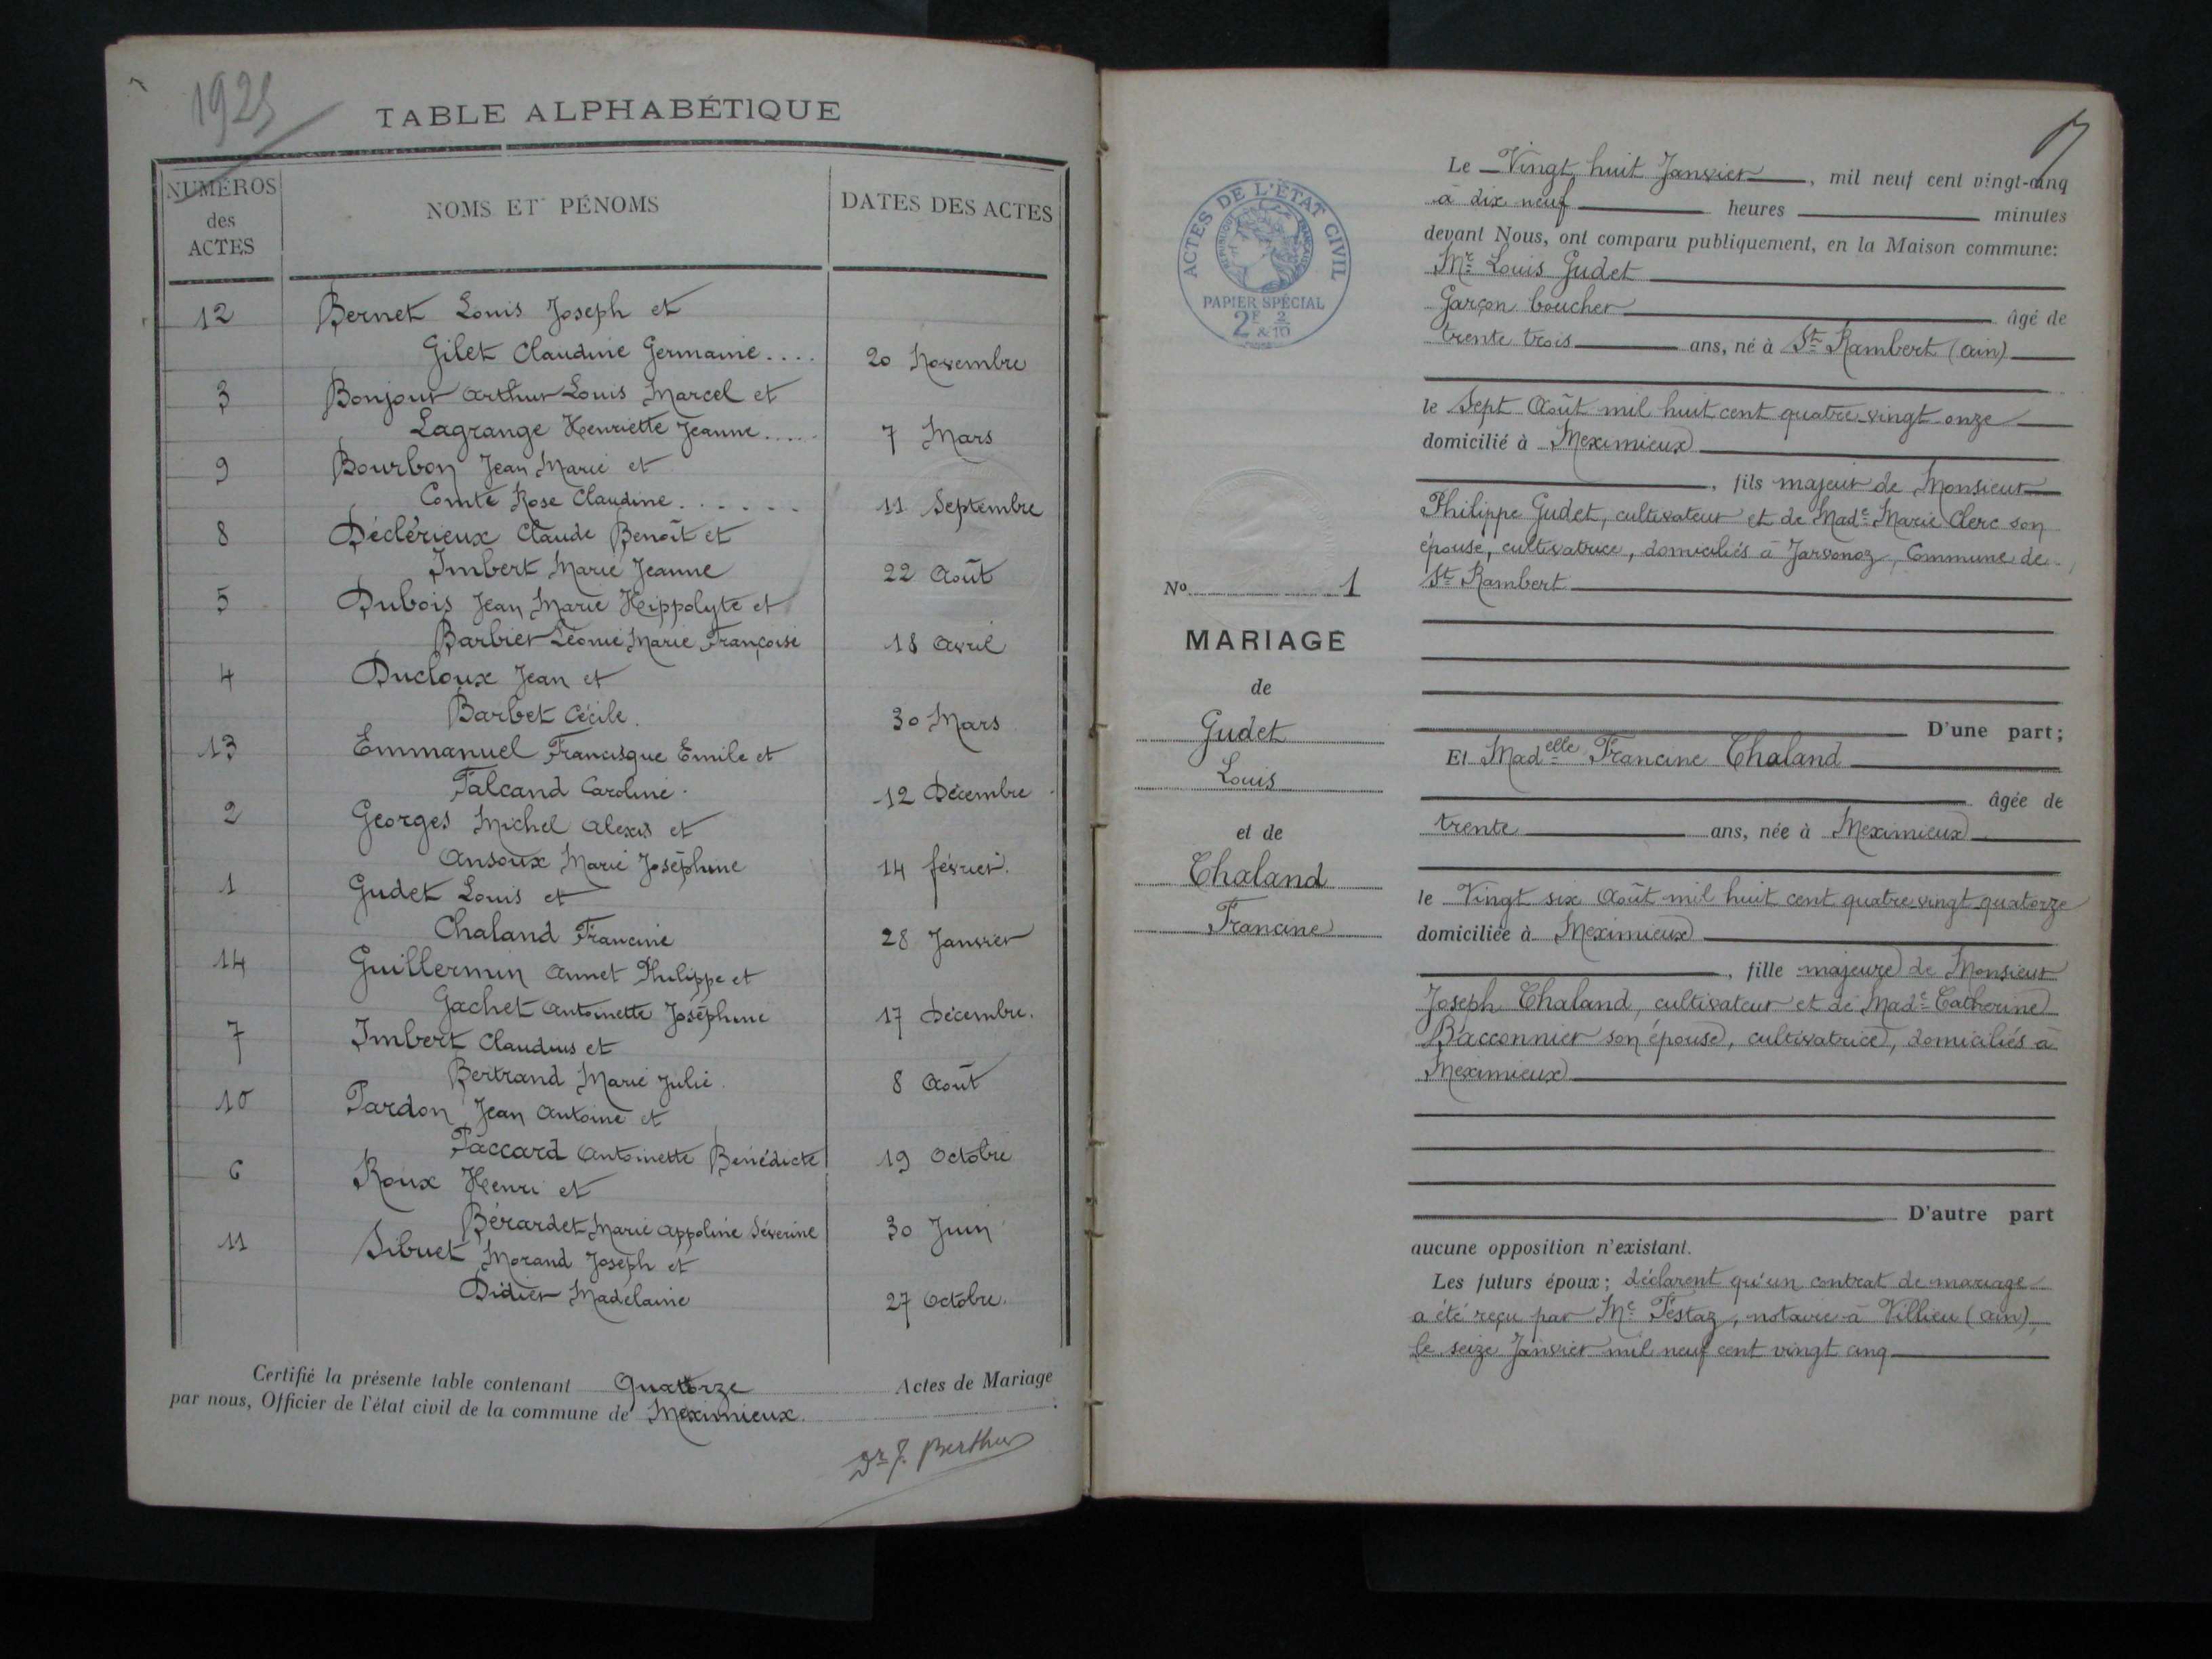 1925
TABLE ALPHABÉTIQUE
NUMÉROS
des
ACTES
NOMS ET PÉNOMS
DATES DES ACTES
12 Bernet Louis Joseph et
Gilet Claudine Germaine.... 20 Novembre
3 Bonjour Arthur Louis Marcel et
Lagrange Henriette Jeanne..... 7 Mars
9 Bourbon Jean Marie et
Comte Rose Claudine...... 11 Septembre
8 Déclérieux Claude Benoît et
Imbert Marie Jeanne 22 Août
5 Dubois Jean Marie Hippolyte et
Barbier Léonie Marie Françoise 18 Avril
4 Ducloux Jean et
Barbet Cécile. 30 Mars
13 Emmanuel Francisque Emile et
Falcand Caroline. 12 Décembre
2 Georges Michel Alexis et
Ansoux Marie Joséphine 14 février.
1 Gudet Louis et
Chaland Francine 28 Janvier
14 Guillermin Annet Philippe et
Gachet Antoinette Joséphine 17 Décembre.
7 Imbert Claudius et
Bertrand Marie Julie. 8 Août
10 Pardon Jean Antoine et
Paccard Antoinette Bénédicte 19 Octobre
6 Roux Henri et
Bérardet Marie Appoline Séverine 30 Juin
11 Sibuet Morand Joseph et
Didier Madelaine 27 Octobre.
Certifié la présente table contenant Quatorze Actes de Mariage
par nous, Officier de l'état civil de la commune de Meximieux.
Dr J. Berthier
ACTES DE L'ÉTAT CIVIL
RÉPUBLIQUE FRANÇAISE
PAPIER SPÉCIAL
2F & 2/10
No 1
MARIAGE
de
Gudet
Louis
et de
Chaland
Francine
Le Vingt huit Janvier, mil neuf cent vingt-cinq
à dix neuf heures minutes
devant Nous, ont comparu publiquement, en la Maison commune:
Mr Louis Gudet
Garçon boucher âgé de
trente trois ans, né à St Rambert (Ain)
le Sept Août mil huit cent quatre-vingt-onze
domicilié à Meximieux
, fils majeur de Monsieur
Philippe Gudet, cultivateur et de Made Marie Clerc son
épouse, cultivatrice, domiciliés à Jarvonoz, Commune de
St Rambert
D'une part;
Et Madelle Francine Chaland
âgée de
trente ans, née à Meximieux
le Vingt six Août mil huit cent quatre vingt quatorze
domiciliée à Meximieux
, fille majeure de Monsieur
Joseph Chaland, cultivateur et de Made Catherine
Bacconnier son épouse, cultivatrice, domiciliés à
Meximieux
D'autre part
aucune opposition n'existant.
Les futurs époux; déclarent qu'un contrat de mariage
a été reçu par Me Festaz, notaire à Villieu (Ain),
le seize Janvier mil neuf cent vingt cinq